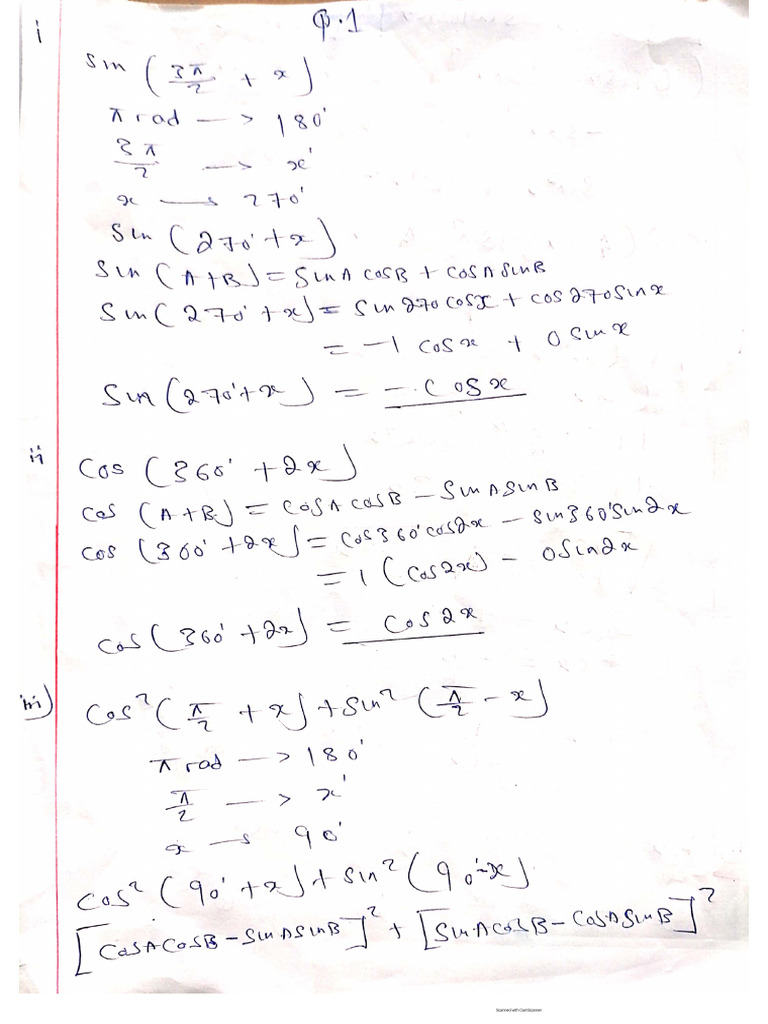 Q.1
i
sin (3π/2 + x)
π rad —> 180°
3π/2 —> x°
x —> 270°
sin (270° + x)
sin (A+B) = sinA cosB + cosA sinB
sin (270° + x) = sin270 cosx + cos270 sinx
= -1 cosx + 0 sinx
sin (270° + x) = - cosx
ii
cos (360° + 2x)
cos (A+B) = cosA cosB - sinA sinB
cos (360° + 2x) = cos360° cos2x - sin360° sin2x
= 1 (cos2x) - 0 sin2x
cos (360° + 2x) = cos2x
iii) cos² (π/2 + x) + sin² (π/2 - x)
π rad —> 180°
π/2 —> x°
x —> 90°
cos² (90° + x) + sin² (90° - x)
[cosA cosB - sinA sinB]² + [sinA cosB - cosA sinB]²
Scanned with CamScanner